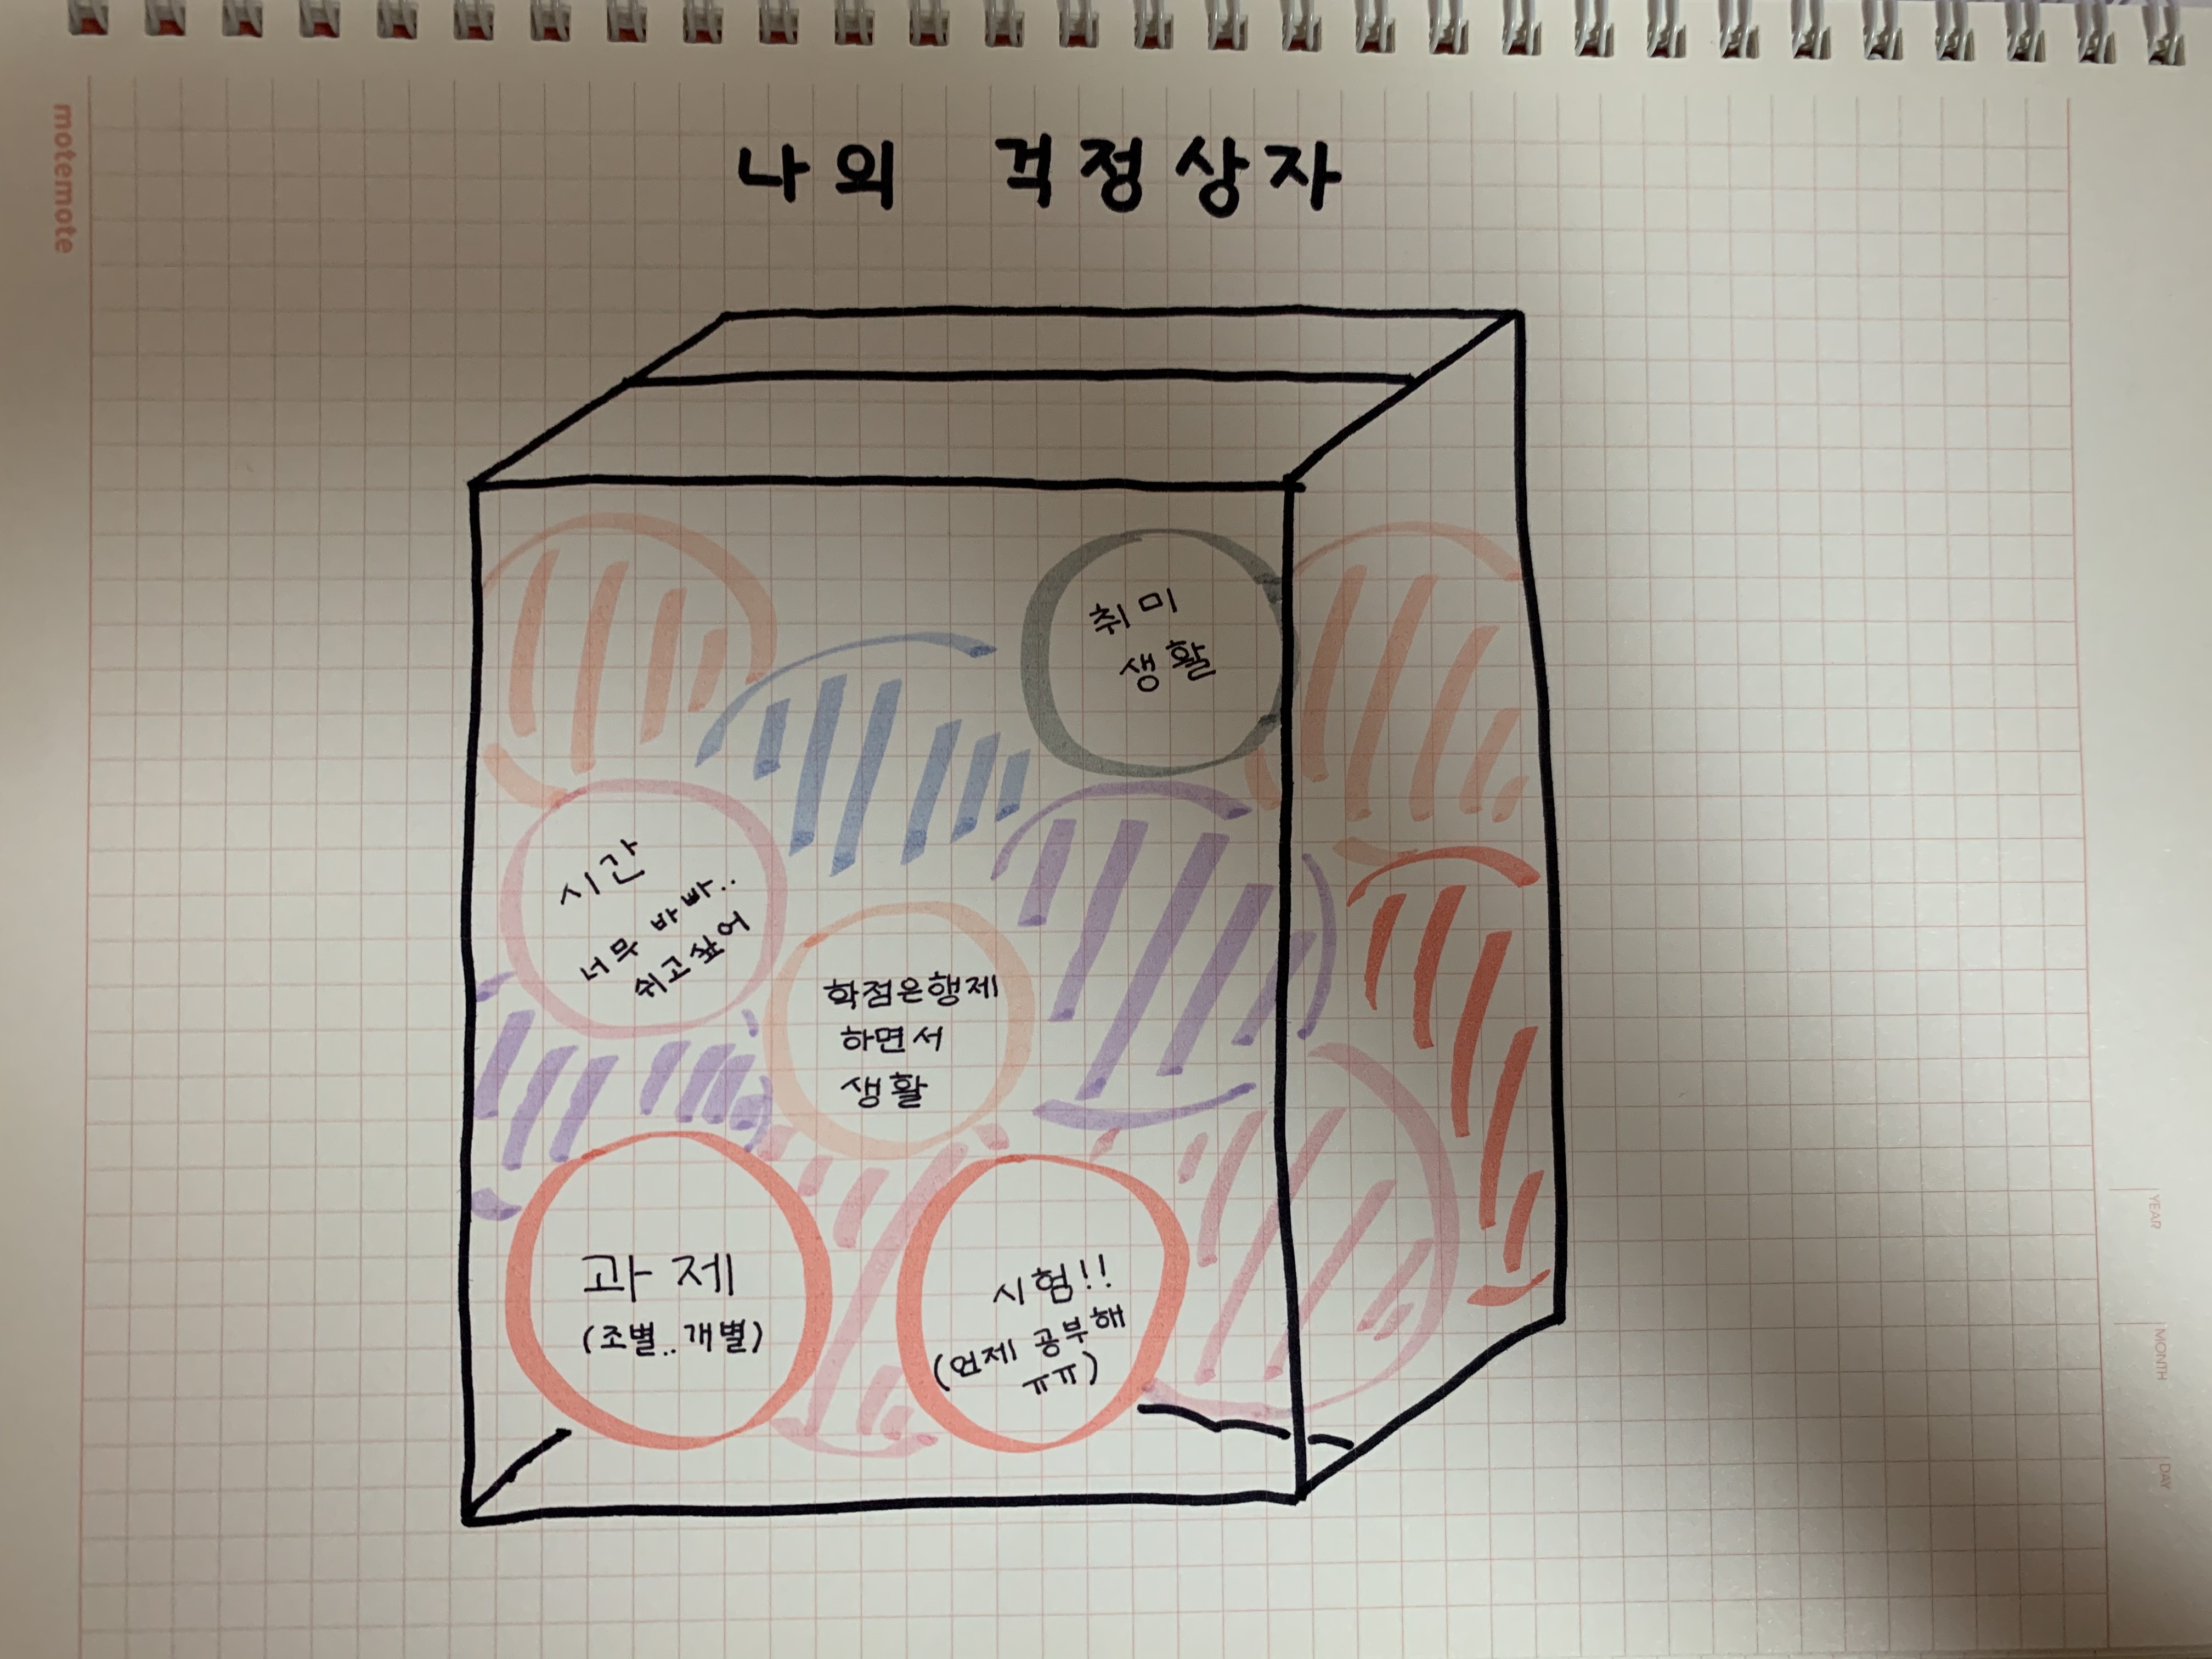 motemote
나의 걱정상자
취미
생활
시간
너무 바빠..
쉬고싶어
학점은행제
하면서
생활
과제
(조별..개별)
시험!!
(언제 공부해
ㅠㅠ)
YEAR
MONTH
DAY